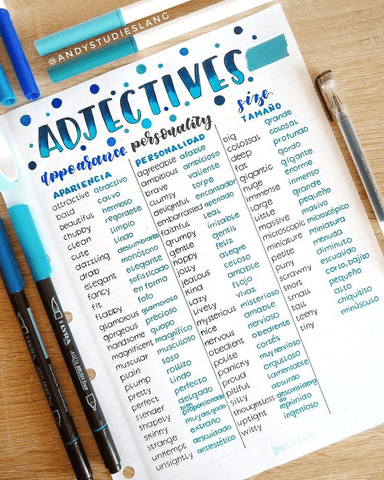 @ANDYSTUDIESLANG
ADJECTIVES
appearance
APARIENCIA
attractive atractivo
bald calvo
beautiful hermoso
chubby regordete
clean limpio
cute lindo
dazzling deslumbrante
drab monótono
elegant elegante
fancy sofisticado
fit en forma
flabby fofo
glamorous glamoroso
gorgeous precioso
handsome guapo
magnificent magnífico
muscular musculoso
plain soso
plump rollizo
pretty lindo
perfect perfecto
slender delgado
shapely
skinny muy delgado
strange extraño
unkempt descuidado
unsightly antiestético
personality
PERSONALIDAD
agreeable afable
ambitious ambicioso
brave valiente
clumsy torpe
delightful encantador
embarrassed apenado
faithful leal
grumpy irritable
gentle gentil
happy feliz
jolly alegre
jealous celoso
kind amable
lazy flojo
lively vivaz
mysterious misterioso
nice amable
nervous ansioso
obedient obediente
polite cortés
panicky muy nervioso
proud orgulloso
pitiful lamentable
silly absurdo
thoughtless desconsiderado
uptight reprimido
witty ingenioso
size
TAMAÑO
big grande
colossal colosal
deep profundo
fat gordo
gigantic gigante
huge enorme
immense inmenso
large grande
little pequeño
massive masivo
microscopic microscópico
miniature miniatura
petite menuda
puny diminuto
scrawny escuálido
short corto, bajito
small pequeño
tall alto
teeny chiquitito
tiny minúsculo
KYMA